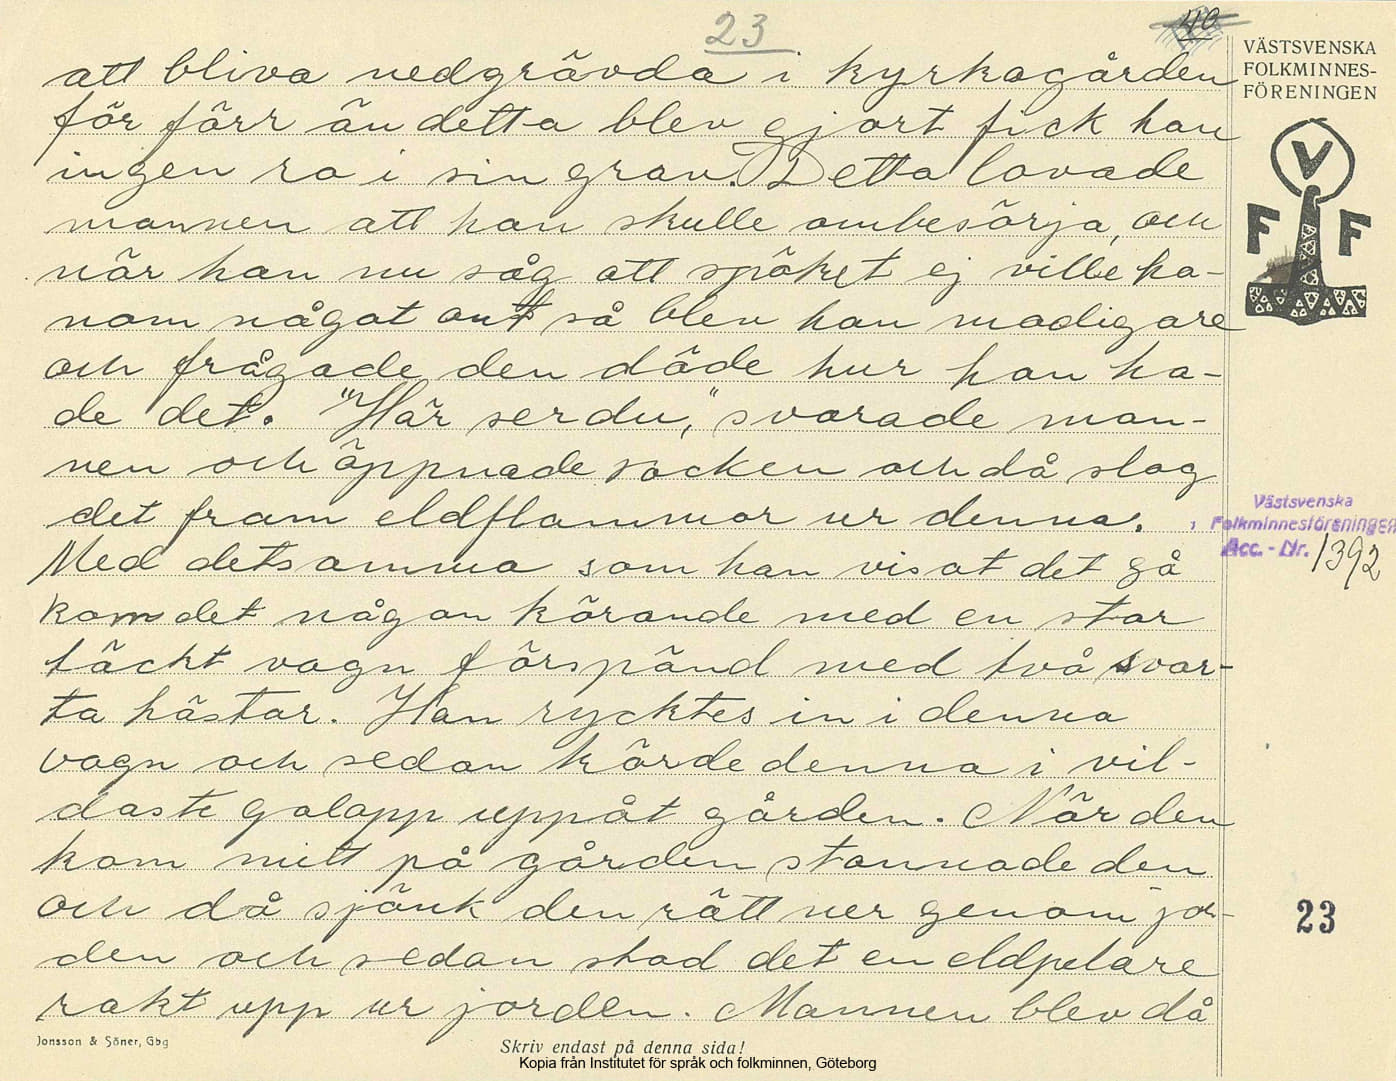 23
40
VÄSTSVENSKA
FOLKMINNES-
FÖRENINGEN
att bliva nedgrävda i kyrkogården
för förr än detta blev gjort fick han
ingen ro i sin grav. Detta lovade
mannen att han skulle ombesörja, och
när han nu såg att spöket ej ville ho-
nom något ont så blev han modigare
och frågade den döde hur han ha-
de det. "Här ser du," svarade man-
nen och öppnade rocken och då slog
det fram eldflammor ur denna.
Med detsamma som han visat det gå
kom det någon körande med en stor
täckt vagn förspänd med två svar-
ta hästar. Han rycktes in i denna
vagn och sedan körde denna i vil-
daste galopp uppåt gården. När den
kom mitt på gården stannade den
och då sjönk den rätt ner genom jor-
den och sedan stod det en eldpelare
rakt upp ur jorden. Mannen blev då
V
F F
Västsvenska
Folkminnesföreningen
Acc. - Nr. 1392
23
Jonsson & Söner, Gbg
Skriv endast på denna sida!
Kopia från Institutet för språk och folkminnen, Göteborg